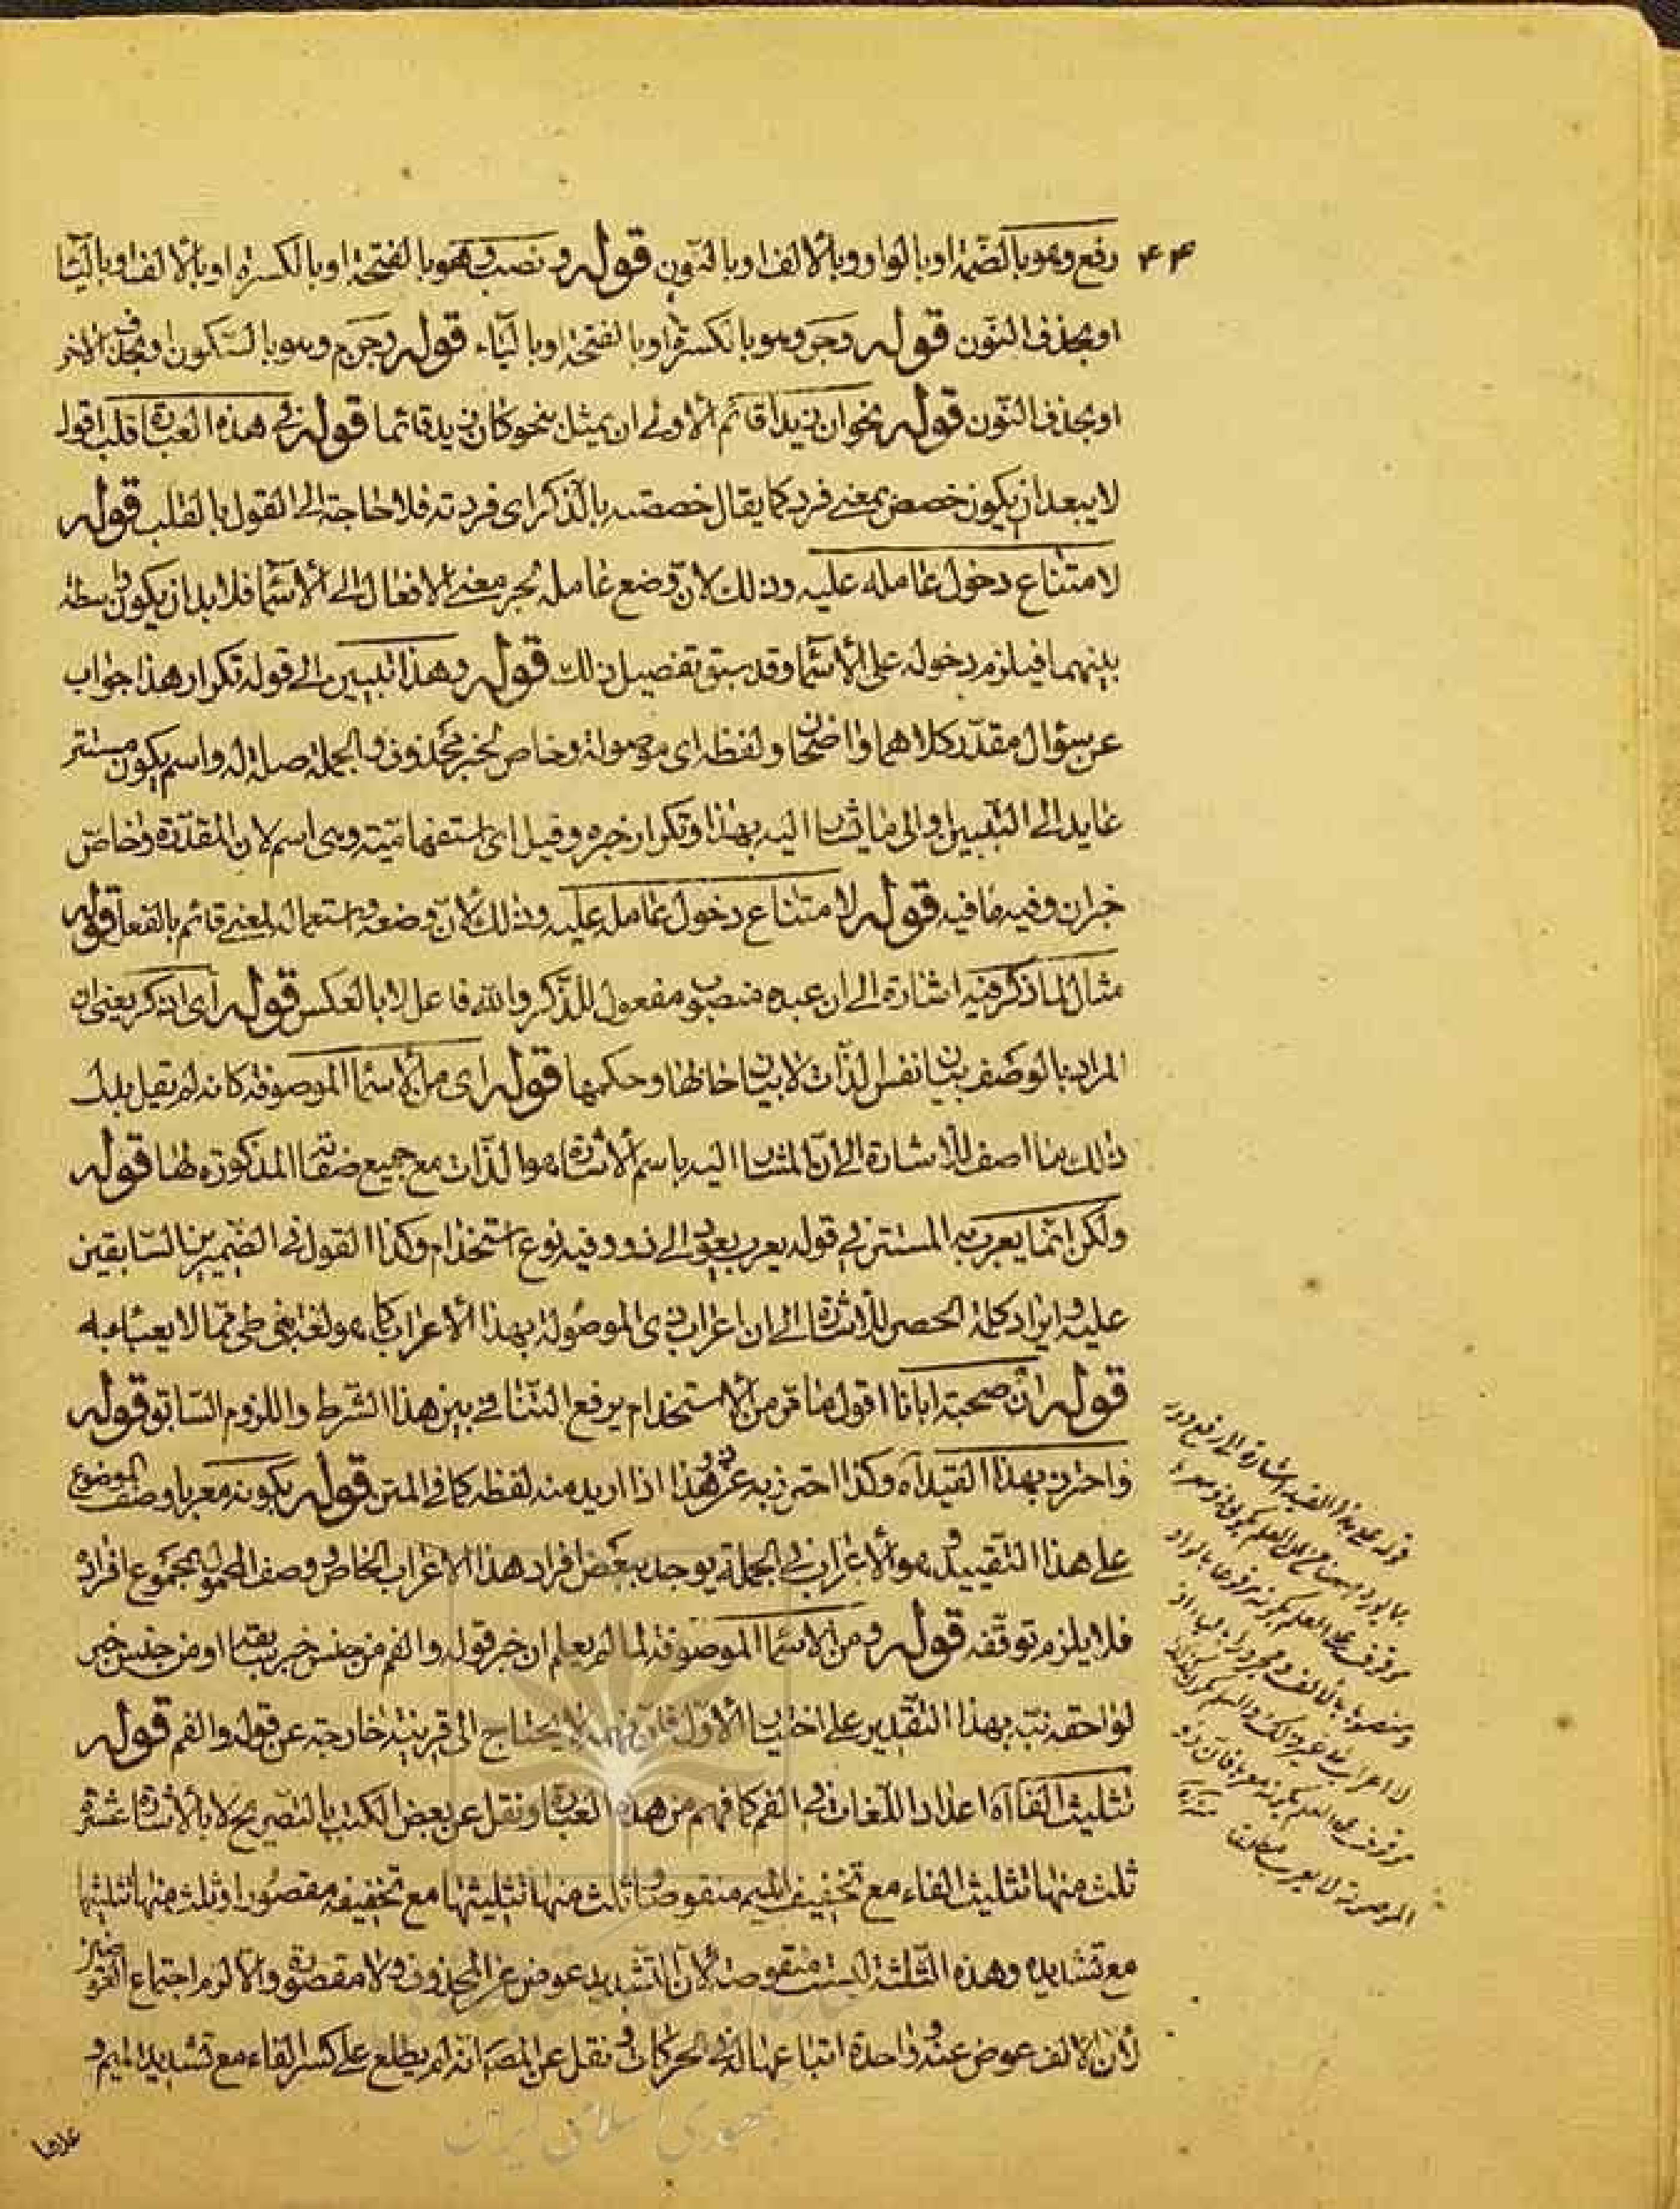 ۴۴
رفع وهو بالضمة او بالواو وبالألف او بالنون قوله ونصب وهو بالفتحة او بالكسرة او بالألف او بالياء
او بحذف النون قوله وجر وهو بالكسرة او بالفتحة او بالياء قوله وجزم وهو بالسكون او بحذف الآخر
او بحذف النون قوله نحو ان زيدا قائم الأولى ان يمثل بنحو كان زيد قائما قوله في هذه العبارة قلب اقول
لا يبعد ان يكون خصص بمعنى فرد كما يقال خصصته بالذكر اى فردته فلا حاجة الى القول بالقلب قوله
لامتناع دخول عامله عليه وذلك لان وضع عامله لجر معنى الافعال الى الأسماء فلا بد ان يكون واسطة
بينهما فيلزم دخوله على الأسماء وقد سبق تفصيل ذلك قوله وهذا تبيين الى قوله تكرار هذا جواب
عن سؤال مقدر كلاهما واضحان ولفظه اى موصولة وخاص لخبر محذوف والجملة صلة له واسم يكون مستتر
عايد الى التبيين او الى ما يشار اليه بهذا وتكرار خبره وقيل اى استفهامية وهى اسم لان المقدرة وخاص
خبر ان وفيه ما فيه قوله لامتناع دخول عامله عليه وذلك لان وضعه واستعماله لمعنى قائم بالفعل قوله
مثال لما ذكر فيه اشارة الى ان عبده منصوب مفعول للذكر والله فاعل لا بالعكس قوله اى اذكر يعنى ان
المراد بالوصف بيان نفس الذات لا بيان حالها وحكمها قوله اى من الأسماء الموصوفة كانه لم يقل بدل
ذلك بما اصف للاشارة الى ان المشار اليه باسم الأشارة هو الذات مع جميع صفاتها المذكورة لها قوله
ولكن انما يعرب به المستتر في قوله يعرب يعود الى ذو وفيه نوع استخدام وكذا القول في الضميرين السابقين
عليه وايراد كلمة الحصر للاشارة الى ان اعراب ذى الموصولة بهذا الأعراب كما هو لغة بنى طى مما لا يعبأ به
قوله ان صحبة ابانا اقول ما مر من الأستخدام يرفع التنافي بين هذا الشرط واللزوم السابق قوله
واحترز بهذا القيد اه وكذا احترز به عن ذو هذا اذا اريد منه لفظه كما في المتن قوله بكونه معربا وصف الموضوع
على هذا التقييد هو الأعراب في الجملة يوجد ببعض افراد هذا الاعراب الخاص وصف المحمول بمجموع افراده
فلا يلزم توقفه قوله ومن الاسماء الموصوفة لما لم يعلم ان خبر قوله والفم من جنس خبر بقيتها او من جنس خبر
لواحقه نبه بهذا التقدير على اختيار الأول فان فهمه لا يحتاج الى قرينة خارجة عن قوله والفم قوله
تثليث الفاء اه اعداد اللغات في الفم كما فهم من هذه العبارة ونقل عن بعض الكتب بالتصريح لا بالأشارة عشرة
ثلث منها تثليث الفاء مع تخفيف الميم منقوصا وثلث منها تثليثها مع تخفيفه مقصورا وثلث منها تثليثها
مع تشديده وهذه الثلثة ليست منقوصة لان التشديد عوض عن المحذوف ولا مقصورة والا لزم اجتماع العوضين
لان الالف عوض عنه وواحدة اتباعها له في الحركات ونقل عن المصـ انه لم يطلع على كسر الفاء مع تشديد الميم و
علامة
قوله بهذا القيد اشارة الى رفع دور
موقوف على العلم بكونه مرفوعا بالواو
ومنصوبا بالألف ومجرورا بالياء اذ
لا اعراب له غير ذلك والعلم
موقوف على العلم بكونه معربا فان ذو
الموصولة لا يعرب مطلقا